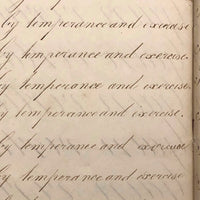 by temperance and exercise
by temperance and exercise.
by temperance and exercise.
by temperance and exercise.
by temperance and exercise
by temperance and exercise